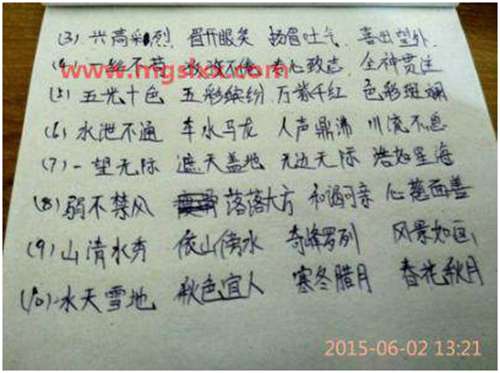 (3) 兴高彩烈 眉开眼笑 扬眉吐气 喜出望外
(4) 一丝不苟 孜孜不倦 专心致志 全神贯注
www.mgslxx.com
(5) 五光十色 五彩缤纷 万紫千红 色彩斑斓
(6) 水泄不通 车水马龙 人声鼎沸 川流不息
(7) 一望无际 遮天盖地 无边无际 浩如星海
(8) 弱不禁风 落落大方 和谒可亲 心慈面善
(9) 山清水秀 依山傍水 奇峰罗列 风景如画
(10) 水天雪地 秋色宜人 寒冬腊月 春花秋月
2015-06-02 13:21